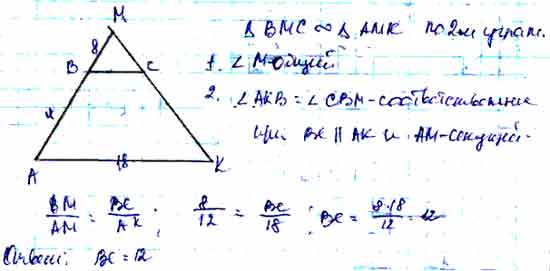 M
8
B
C
4
A
18
K
Δ BMC ∞ Δ AMK по 2м углам.
1. ∠ M-общий
2. ∠AKB = ∠CBM - соответственные
при BC || AK и AM-секущей.
BM/AM = BC/AK ; 8/12 = BC/18 ; BC = 8·18/12 = 12
Ответ: BC = 12